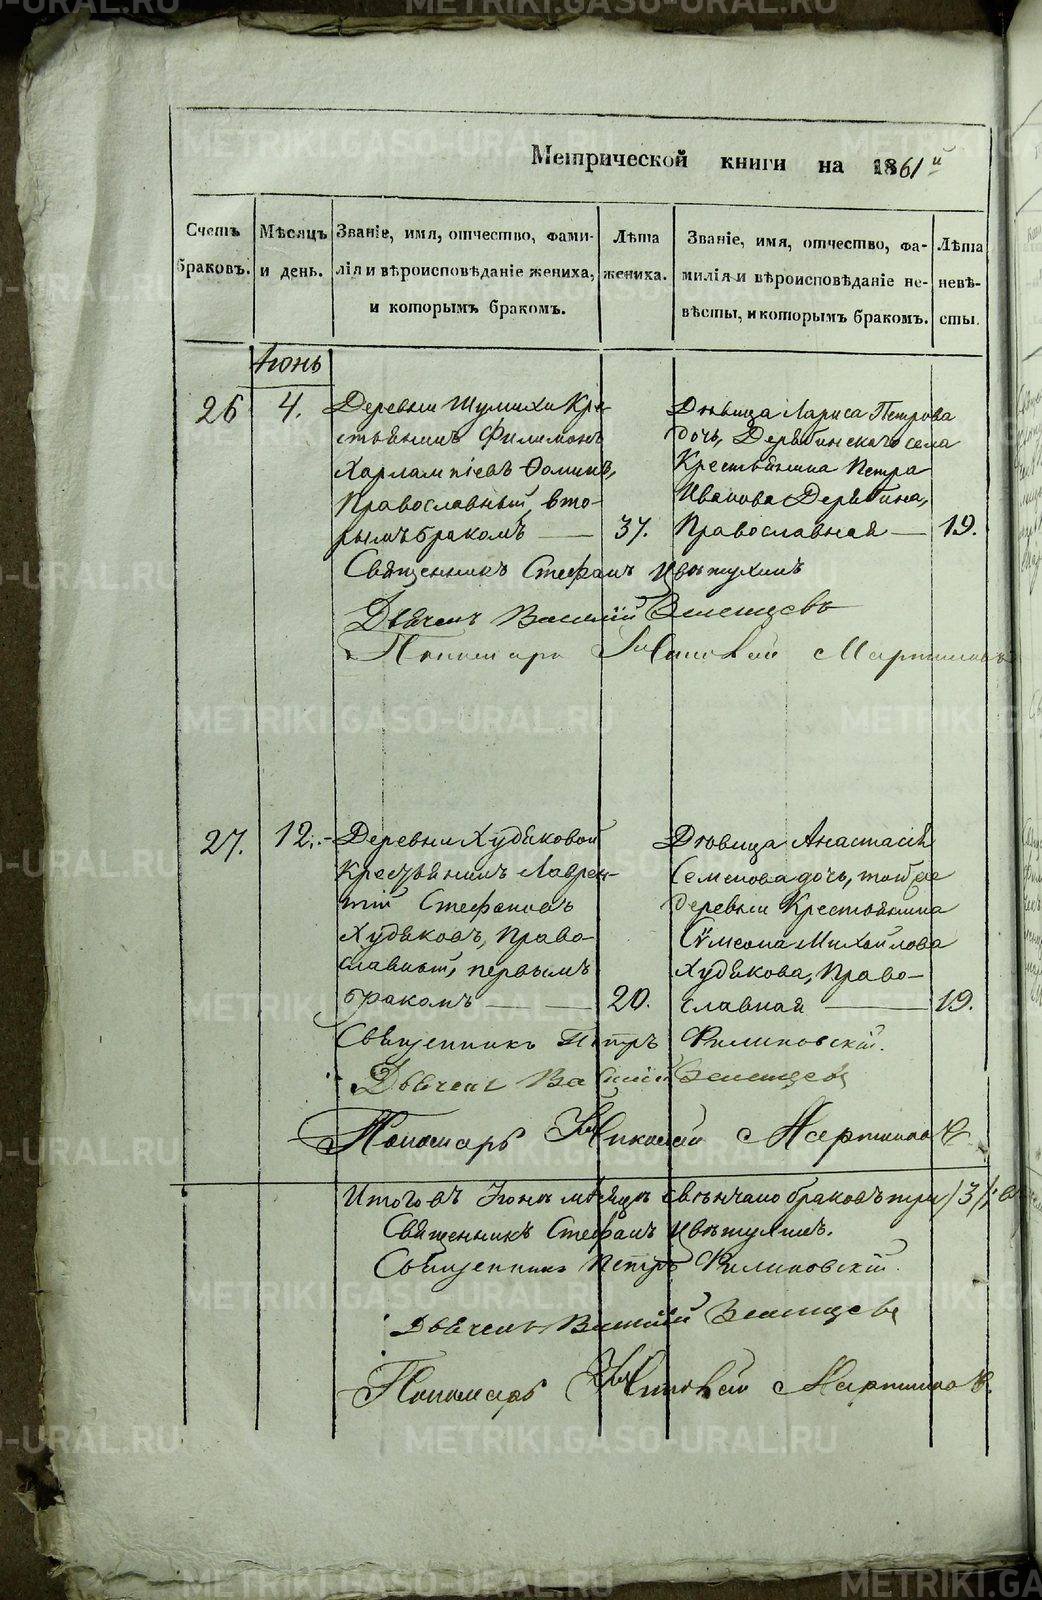 METRIKI.GASO-URAL.RU
Метрической книги на 1861й
Счетъ браковъ.
Мѣсяцъ и день.
Званіе, имя, отчество, фами-
лія и вѣроисповѣданіе жениха,
и которымъ бракомъ.
Лѣта жениха.
Званіе, имя, отчество, фа-
милія и вѣроисповѣданіе не-
вѣсты, и которымъ бракомъ.
Лѣта невѣ-
сты.
Іюнь
26
4.
Деревни Шумихи Кре-
стьянинъ Филимонъ
Харлампіевъ Ѳоминъ,
Православный, вто-
рымъ бракомъ
37.
Дѣвица Лариса Петрова
дочь, Дерябинскаго села
Крестьянина Петра
Иванова Дерябина,
Православная
19.
Священникъ Стефанъ Цвѣтухинъ
Дьячекъ Василій
Пономарь Николай Мартиновъ
27.
12.
Деревни Худяковой
Крестьянинъ Лаврен-
тій Стефановъ
Худяковъ, Право-
славный, первымъ
бракомъ
20.
Дѣвица Анастасія
Семенова дочь, той же
деревни Крестьянина
Сѵмеона Михайлова
Худякова, Право-
славная
19.
Священникъ Петръ Филиповскій.
Дьячекъ Василій
Пономарь Николай Мартиновъ
Итого въ Іюнѣ мѣсяцѣ свѣнчано браковъ три /3/
Священникъ Стефанъ Цвѣтухинъ.
Священникъ Петръ Филиповскій.
Дьячекъ Василій
Пономарь Николай Мартиновъ.